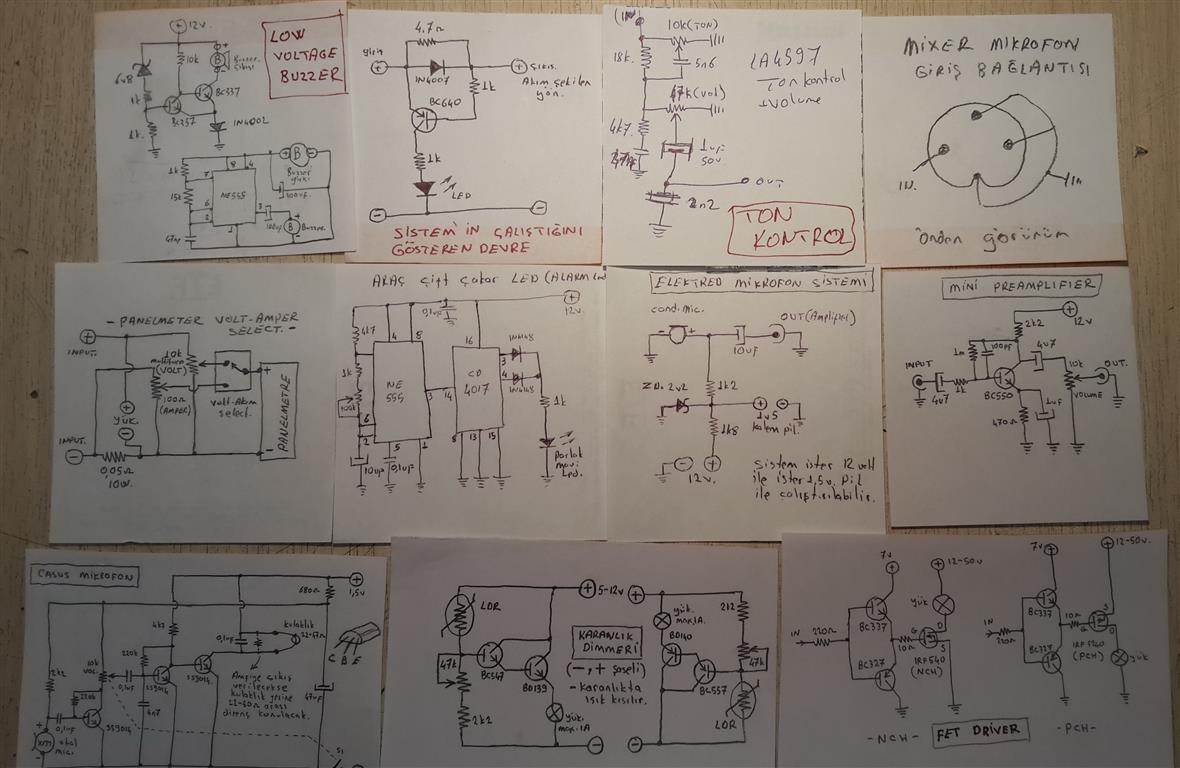 12v.
LOW
VOLTAGE
BUZZER
10k
Buzzer
6v8
1k
BC337
BC257
1k.
1N4002
1k
8
4
B
Buzzer
7
15k
NE555
100uF
6
2
3
100uF
B
Buzzer
1
47nF
4.7Ω
giriş
çıkış.
Akım çekilen
yön.
1N4007
1k
BC640
1k
LED
SİSTEM'İN ÇALIŞTIĞINI
GÖSTEREN DEVRE
(IN)
10k(TON)
18k
5n6
LA4597
Ton kontrol
1volume
47k(vol)
4k7
1uF
50v
OUT
2n2
TON
KONTROL
MİXER MİKROFON
GİRİŞ BAĞLANTISI
IN.
In
Önden görünüm
- PANELMETER VOLT-AMPER
SELECT. -
INPUT.
10k
multiturn
(VOLT)
100Ω
(AMPER)
volt-Akım
select.
+
-
PANELMETRE
yük.
INPUT.
0,05Ω
10W.
ARAÇ çift çakar LED (ALARM
0,1uF
12v.
4k7
4
8
16
1N4148
1k
NE
555
CD
4017
3
4
1N4148
100k
3
14
1k
6
2
5
1
8
13
15
10uF
0,1uF
Parlak
mavi
Led.
ELEKTRED MİKROFON SİSTEMİ
cond. mic.
OUT(Amplifier)
10uF
Z.D. 2v2
1k2
1v5
kalem pil.
1k8
12v.
Sistem ister 12 volt
ile ister 1,5v. pil
ile çalıştırılabilir.
MİNİ PREAMPLİFİER
12v
2k2
1m
100pF
4u7
INPUT
10k
OUT.
BC550
VOLUME
4u7
1k
1uF
470Ω
CASUS MİKROFON
680Ω
1,5v
4k7
kulaklık
0,1uF
32-47Ω
C B E
2k2
10k
VOL.
220k
0,1uF
SS9014
SS9014
220k
4n7
0,1uF
SS9014
Amfiye çıkış
verilecekse
kulaklık yerine
22-50Ω arası
direnç konulacak.
47uF
mic.
S1
LDR
5-12v
yük.
max1A.
2k2
KARANLIK
DİMMERİ
(-,+ şaseli)
-karanlıkta
ışık kısılır.
BD140
47k
BC547
BD139
BC557
47k
2k2
yük.
max.1A
LDR
7v
12-50v
7v
12-50v.
yük
BC337
BC337
IN
220Ω
10Ω
G
D
S
IRF540
(NCH)
IN
220Ω
10Ω
G
S
D
IRF540
(PCH)
yük
BC327
BC327
-NCH-
FET DRIVER
-PCH-